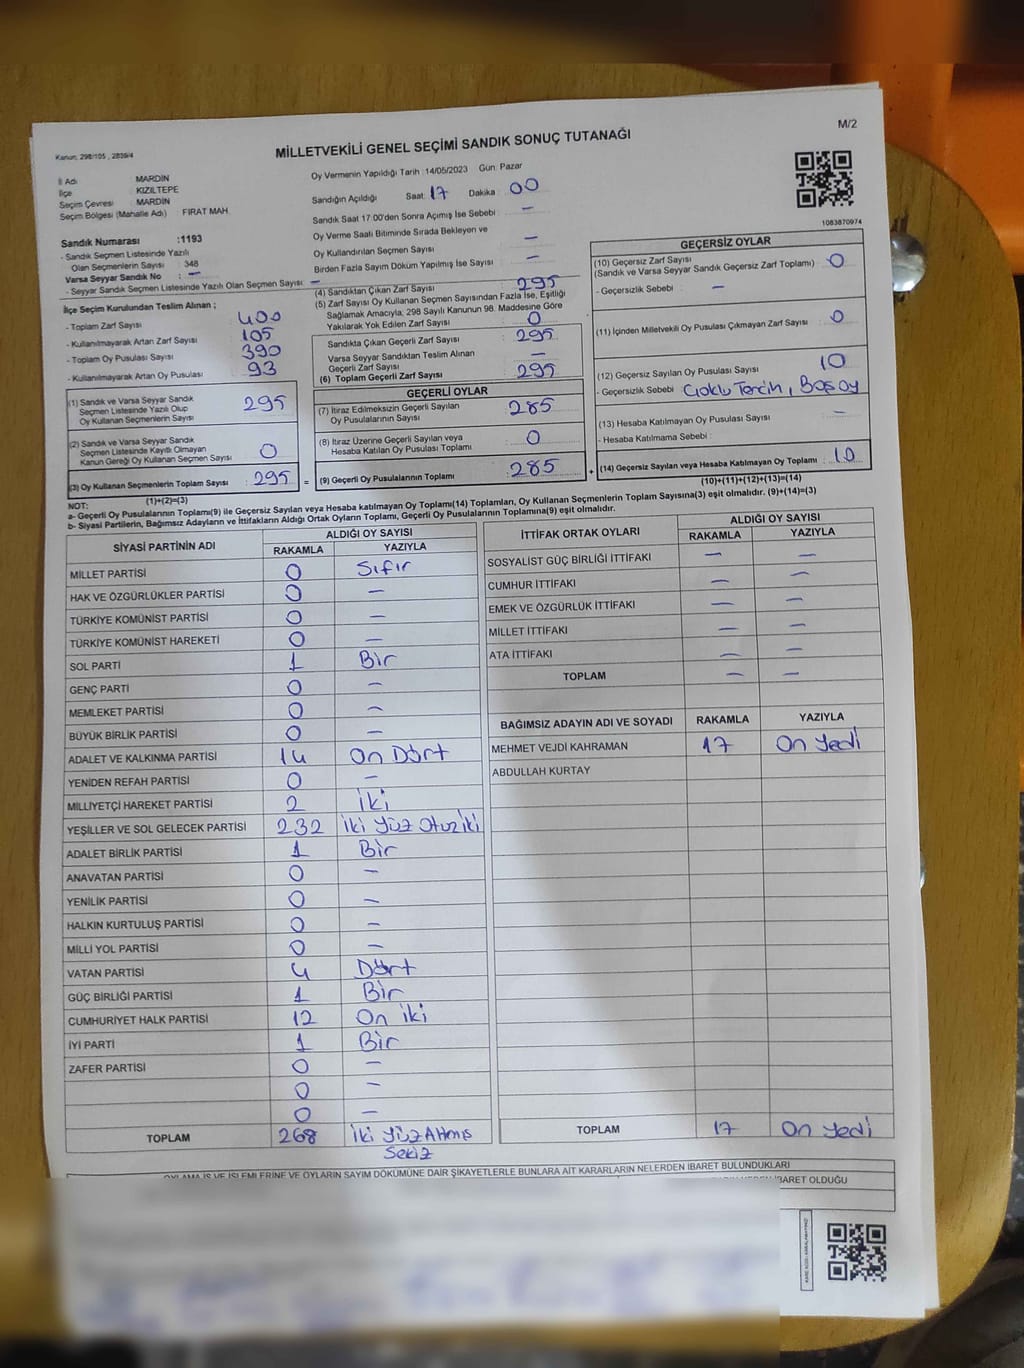 M/2
Kanun: 298/105 , 2839/4
MİLLETVEKİLİ GENEL SEÇİMİ SANDIK SONUÇ TUTANAĞI
İl Adı : MARDİN
İlçe : KIZILTEPE
Seçim Çevresi : MARDİN
Seçim Bölgesi (Mahalle Adı) FIRAT MAH
Sandık Numarası :1193
- Sandık Seçmen Listesinde Yazılı
Olan Seçmenlerin Sayısı : 348
Varsa Seyyar Sandık No : —
- Seyyar Sandık Seçmen Listesinde Yazılı Olan Seçmen Sayısı : —
Oy Vermenin Yapıldığı Tarih :14/05/2023 Gün: Pazar
Sandığın Açıldığı Saat: 17 Dakika : 00
Sandık Saat 17:00'den Sonra Açımış İse Sebebi : —
Oy Verme Saati Bitiminde Sırada Bekleyen ve
Oy Kullandırılan Seçmen Sayısı : —
Birden Fazla Sayım Döküm Yapılmış İse Sayısı : —
1083870974
İlçe Seçim Kurulundan Teslim Alınan ;
- Toplam Zarf Sayısı : 400
- Kullanılmayarak Artan Zarf Sayısı : 105
- Toplam Oy Pusulası Sayısı : 390
- Kullanılmayarak Artan Oy Pusulası : 93
(1) Sandık ve Varsa Seyyar Sandık
Seçmen Listesinde Yazılı Olup
Oy Kullanan Seçmenlerin Sayısı : 295
(2) Sandık ve Varsa Seyyar Sandık
Seçmen Listesinde Kayıtlı Olmayan
Kanun Gereği Oy Kullanan Seçmen Sayısı : 0
(3) Oy Kullanan Seçmenlerin Toplam Sayısı : 295
(1)+(2)=(3)
(4) Sandıktan Çıkan Zarf Sayısı : 295
(5) Zarf Sayısı Oy Kullanan Seçmen Sayısından Fazla İse, Eşitliği
Sağlamak Amacıyla; 298 Sayılı Kanunun 98. Maddesine Göre
Yakılarak Yok Edilen Zarf Sayısı : 0
Sandıkta Çıkan Geçerli Zarf Sayısı : 295
Varsa Seyyar Sandıktan Teslim Alınan
Geçerli Zarf Sayısı : —
(6) Toplam Geçerli Zarf Sayısı : 295
GEÇERLİ OYLAR
(7) İtiraz Edilmeksizin Geçerli Sayılan
Oy Pusulalarının Sayısı : 285
(8) İtiraz Üzerine Geçerli Sayılan veya
Hesaba Katılan Oy Pusulası Toplamı : 0
= (9) Geçerli Oy Pusulalarının Toplamı : 285 +
GEÇERSİZ OYLAR
(10) Geçersiz Zarf Sayısı : 0
(Sandık ve Varsa Seyyar Sandık Geçersiz Zarf Toplamı)
- Geçersizlik Sebebi : —
(11) İçinden Milletvekili Oy Pusulası Çıkmayan Zarf Sayısı : 0
(12) Geçersiz Sayılan Oy Pusulası Sayısı : 10
- Geçersizlik Sebebi : Çoklu Tercih, Boş oy
(13) Hesaba Katılmayan Oy Pusulası Sayısı : —
- Hesaba Katılmama Sebebi :
(14) Geçersiz Sayılan veya Hesaba Katılmayan Oy Toplamı : 10
(10)+(11)+(12)+(13)=(14)
NOT:
a- Geçerli Oy Pusulalarının Toplamı(9) ile Geçersiz Sayılan veya Hesaba katılmayan Oy Toplamı(14) Toplamları, Oy Kullanan Seçmenlerin Toplam Sayısına(3) eşit olmalıdır. (9)+(14)=(3)
b- Siyasi Partilerin, Bağımsız Adayların ve İttifakların Aldığı Ortak Oyların Toplamı, Geçerli Oy Pusulalarının Toplamına(9) eşit olmalıdır.
SİYASİ PARTİNİN ADI ALDIĞI OY SAYISI
RAKAMLA YAZIYLA
MİLLET PARTİSİ 0 Sıfır
HAK VE ÖZGÜRLÜKLER PARTİSİ 0 —
TÜRKİYE KOMÜNİST PARTİSİ 0 —
TÜRKİYE KOMÜNİST HAREKETİ 0 —
SOL PARTİ 1 Bir
GENÇ PARTİ 0 —
MEMLEKET PARTİSİ 0 —
BÜYÜK BİRLİK PARTİSİ 0 —
ADALET VE KALKINMA PARTİSİ 14 On Dört
YENİDEN REFAH PARTİSİ 0 —
MİLLİYETÇİ HAREKET PARTİSİ 2 iki
YEŞİLLER VE SOL GELECEK PARTİSİ 232 iki yüz otuz iki
ADALET BİRLİK PARTİSİ 1 Bir
ANAVATAN PARTİSİ 0 —
YENİLİK PARTİSİ 0 —
HALKIN KURTULUŞ PARTİSİ 0 —
MİLLİ YOL PARTİSİ 0 —
VATAN PARTİSİ 4 Dört
GÜÇ BİRLİĞİ PARTİSİ 1 Bir
CUMHURİYET HALK PARTİSİ 12 On iki
İYİ PARTİ 1 Bir
ZAFER PARTİSİ 0 —
0 —
0 —
TOPLAM 268 iki yüz Atmış
Sekiz
İTTİFAK ORTAK OYLARI ALDIĞI OY SAYISI
RAKAMLA YAZIYLA
SOSYALİST GÜÇ BİRLİĞİ İTTİFAKI — —
CUMHUR İTTİFAKI — —
EMEK VE ÖZGÜRLÜK İTTİFAKI — —
MİLLET İTTİFAKI — —
ATA İTTİFAKI — —
TOPLAM — —
BAĞIMSIZ ADAYIN ADI VE SOYADI RAKAMLA YAZIYLA
MEHMET VEJDİ KAHRAMAN 17 On yedi
ABDULLAH KURTAY
TOPLAM 17 On yedi
OYLAMA İŞ VE İŞLEMLERİNE VE OYLARIN SAYIM DÖKÜMÜNE DAİR ŞİKAYETLERLE BUNLARA AİT KARARLARIN NELERDEN İBARET BULUNDUKLARI
NEDEN İBARET OLDUĞU